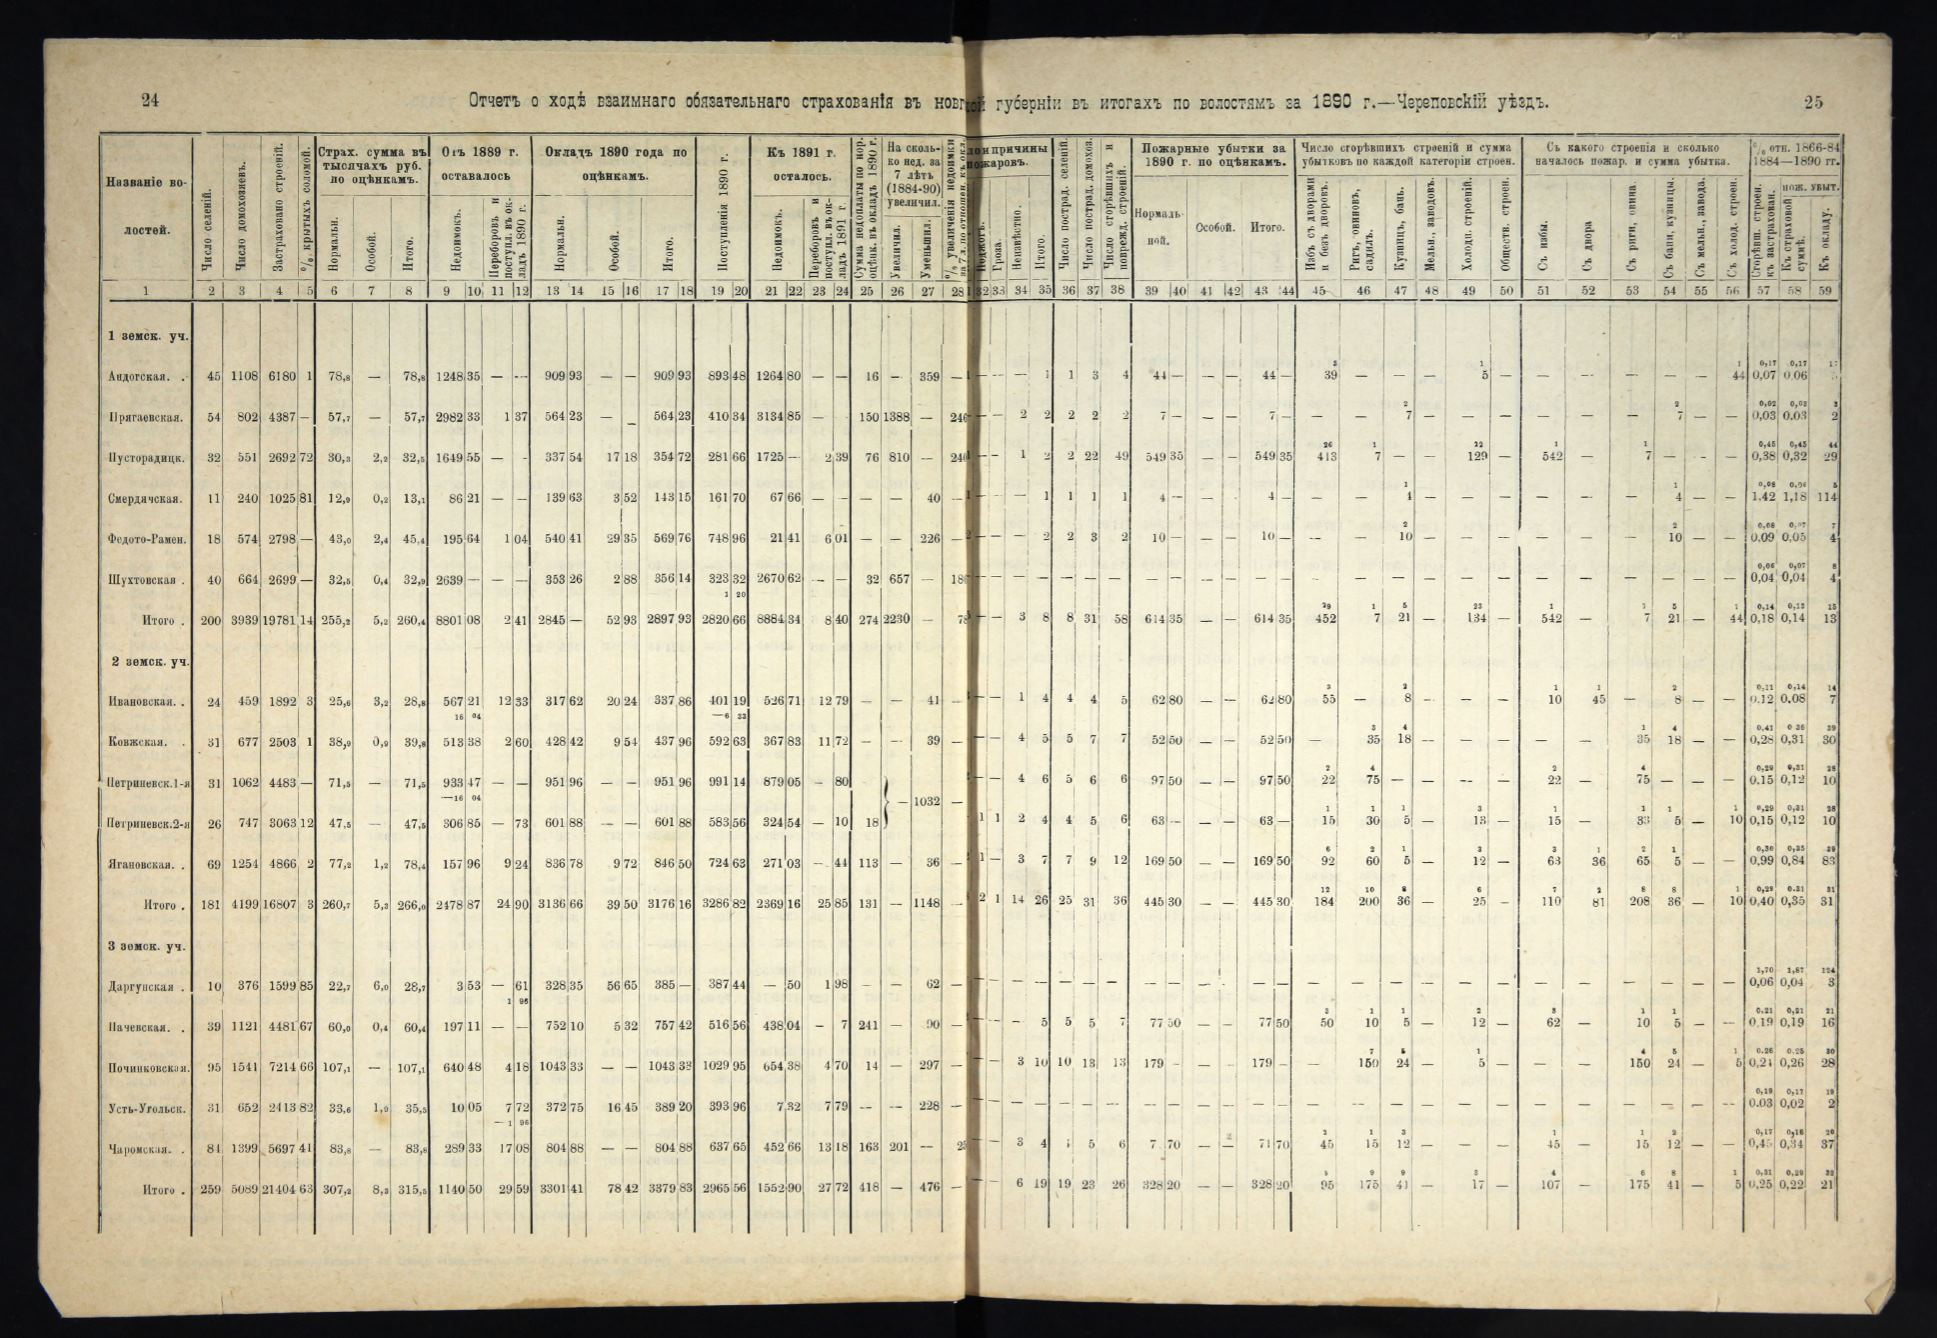 24
Отчетъ о ходѣ взаимнаго обязательнаго страхованія въ новг
ой губерніи въ итогахъ по волостямъ за 1890 г.—Череповскій уѣздъ.
25
Названіе во-
лостей.
Число селеній.
Число домохозяевъ.
Застраховано строеній.
% крытыхъ соломой.
Страх. сумма въ
тысячахъ руб.
по оцѣнкамъ.
Нормальн.
Особой.
Итого.
Отъ 1889 г.
оставалось
Недоимокъ.
Переборовъ и
поступл. въ ок-
ладъ 1890 г.
Окладъ 1890 года по
оцѣнкамъ.
Нормальн.
Особой.
Итого.
Поступленія 1890 г.
Къ 1891 г.
осталось.
Недоимокъ.
Переборовъ и
поступл. въ ок-
ладъ 1891 г.
Сумма недоплаты по нор.
оцѣнк. въ окладъ 1890 г.
На сколь-
ко нед. за
7 лѣтъ
(1884-90)
увеличил.
Увеличил.
Уменьшил.
% увеличенія недоимки
за 7 л. по отношен. къ окл.
и причины
пожаровъ.
Поджогъ.
Гроза.
Неизвѣстно.
Итого.
Число пострад. селеній.
Число пострад. домохоз.
Число сгорѣвшихъ и
поврежд. строеній.
Пожарные убытки за
1890 г. по оцѣнкамъ.
Нормаль-
ной.
Особой.
Итого.
Число сгорѣвшихъ строеній и сумма
убытковъ по каждой категоріи строен.
Избъ съ дворами
и безъ дворовъ.
Ригъ, овиновъ,
садилъ.
Кузницъ, бань.
Мельн., заводовъ.
Холодн. строеній.
Обществ. строен.
Съ какого строенія и сколько
началось пожар. и сумма убытка.
Съ избы.
Съ двора
Съ риги, овина.
Съ бани, кузницы.
Съ мельн., завода.
Съ холод. строен.
% отн. 1866-84
1884—1890 гг.
Сгорѣвш. строен.
къ застрахован.
пож. убыт.
Къ страховой
суммѣ.
Къ окладу.
1 2 3 4 5 6 7 8 9 10 11 12 13 14 15 16 17 18 19 20 21 22 23 24 25 26 27 28 32 33 34 35 36 37 38 39 40 41 42 43 44 45 46 47 48 49 50 51 52 53 54 55 56 57 58 59
1 земск. уч.
3 1 1 0,17 0,17
Андогская. . 45 1108 6180 1 78,8 — 78,8 1248 35 — — 909 93 — — 909 93 893 48 1264 80 — — 16 — 359 — — — — 1 1 3 4 44 — — — 44 — 39 — — — 5 — — — — — — 44 0,07 0,06
2 2 0,02 0,03 3
Прягаевская. 54 802 4387 — 57,7 — 57,7 2982 33 1 37 564 23 — — 564 23 410 34 3134 85 — - 150 1388 — 246 — — 2 2 2 2 2 7 — — — 7 — — — 7 — — — — — — 7 — — 0,03 0,03 2
26 1 22 1 1 0,45 0,45 44
Пусторадицк. 32 551 2692 72 30,3 2,2 32,5 1649 55 — - 337 54 17 18 354 72 281 66 1725 — 2 39 76 810 — 240 — — 1 2 2 22 49 549 35 — — 549 35 413 7 — — 129 — 542 — 7 — - — 0,38 0,32 29
1 1 0,08 0,06 5
Смердячская. 11 240 1025 81 12,9 0,2 13,1 86 21 — — 139 63 3 52 143 15 161 70 67 66 — — — — 40 — — — — 1 1 1 1 4 — — — 4 — — — 4 — — — — — — 4 — — 1,42 1,18 114
2 2 0,08 0,07 7
Федото-Рамен. 18 574 2798 — 43,0 2,4 45,4 195 64 1 04 540 41 29 35 569 76 748 96 21 41 6 01 — — 226 — — — — 2 2 3 2 10 — — — 10 — — — 10 — — — — — — 10 — — 0,09 0,05 4
0,06 0,07 8
Шухтовская . 40 664 2699 — 32,5 0,4 32,9 2639 — — — 353 26 2 88 356 14 323 32 2670 62 — — 32 657 — 18 — — — — — — — — — — — — — — — — — — — — — — — — — 0,04 0,04 4
1 20
29 1 5 23 1 1 5 1 0,14 0,13 15
Итого . 200 3939 19781 14 255,2 5,2 260,4 8801 08 2 41 2845 — 52 93 2897 93 2820 66 8884 34 8 40 274 2230 — 7 — — 3 8 8 31 58 614 35 — — 614 35 452 7 21 — 134 — 542 — 7 21 — 44 0,18 0,14 13
2 земск. уч.
3 2 1 1 2 0,11 0,14 14
Ивановская. . 24 459 1892 3 25,6 3,2 28,8 567 21 12 33 317 62 20 24 337 86 401 19 526 71 12 79 — — 41 — — — 1 4 4 4 5 62 80 — — 62 80 55 — 8 - — — 10 45 — 8 — — 0,12 0,08 7
16 04 —6 33
3 4 1 4 0,41 0 36 39
Ковжская. . 31 677 2503 1 38,9 0,9 39,8 513 38 2 60 428 42 9 54 437 96 592 63 367 83 11 72 — — 39 — — — 4 5 5 7 7 52 50 — — 52 50 — 35 18 — — — — — 35 18 — — 0,28 0,31 30
2 4 2 4 0,29 0,31 28
Петриневск.1-я 31 1062 4483 — 71,5 — 71,5 933 47 — — 951 96 — — 951 96 991 14 879 05 — 80 — — 4 6 5 6 6 97 50 — — 97 50 22 75 — — — — 22 — 75 — — — 0,15 0,12 10
—16 04 — 1032 —
1 1 1 3 1 1 1 1 0,29 0,31 28
Петриневск.2-я 26 747 3063 12 47,5 — 47,5 306 85 — 73 601 88 — — 601 88 583 56 324 54 — 10 18 1 1 2 4 4 5 6 63 — — — 63 — 15 30 5 — 13 — 15 — 33 5 — 10 0,15 0,12 10
6 2 1 3 3 1 2 1 0,30 0,35 39
Ягановская. . 69 1254 4866 2 77,2 1,2 78,4 157 96 9 24 836 78 9 72 846 50 724 63 271 03 — 44 113 — 36 — 1 — 3 7 7 9 12 169 50 — — 169 50 92 60 5 — 12 — 63 36 65 5 — — 0,99 0,84 83
12 10 8 6 7 2 8 8 1 0,29 0.31 31
Итого . 181 4199 16807 3 260,7 5,3 266,0 2478 87 24 90 3136 66 39 50 3176 16 3286 82 2369 16 25 85 131 — 1148 — 2 1 14 26 25 31 36 445 30 — — 445 30 184 200 36 — 25 — 110 81 208 36 — 10 0,40 0,35 31
3 земск. уч.
1,70 1,87 124
Даргунская . 10 376 1599 85 22,7 6,0 28,7 3 53 — 61 328 35 56 65 385 — 387 44 — 50 1 98 — — 62 — — — — — — — — — — — — — — — — — — — — — — — — — — 0,06 0,04 3
1 96
3 1 1 2 3 1 1 0.21 0,21 21
Пачевская. . 39 1121 4481 67 60,0 0,4 60,4 197 11 — — 752 10 5 32 757 42 516 56 438 04 — 7 241 — 90 — — — - 5 5 5 7 77 50 — — 77 50 50 10 5 — 12 — 62 — 10 5 — — 0,19 0,19 16
7 5 1 4 5 1 0.26 0.25 30
Починковская. 95 1541 7214 66 107,1 — 107,1 640 48 4 18 1043 33 — — 1043 33 1029 95 654 38 4 70 14 — 297 — — — 3 10 10 13 13 179 - — — 179 — — 150 24 — 5 — — — 150 24 — 5 0,24 0,26 28
0,19 0,17 19
Усть-Угольск. 31 652 2413 82 33,6 1,9 35,5 10 05 7 72 372 75 16 45 389 20 393 96 7 32 7 79 — — 228 — — — — — — — — — — — — — — — — — — — — — — — — — — 0.03 0,02 2
— 1 96
2 1 3 1 1 2 0,17 0,18 20
Чаромская. . 84 1399 5697 41 83,8 — 83,8 289 33 17 08 804 88 — — 804 88 637 65 452 66 13 18 163 201 — 25 — — 3 4 5 6 7 70 — — 71 70 45 15 12 — — — 45 — 15 12 — — 0,45 0,34 37
5 9 9 3 4 6 8 1 0,31 0,29 32
Итого . 259 5089 21404 63 307,2 8,3 315,5 1140 50 29 59 3301 41 78 42 3379 83 2965 56 1552 90 27 72 418 — 476 — — — 6 19 19 23 26 328 20 — — 328 20 95 175 41 — 17 — 107 — 175 41 — 5 0,25 0,22 21